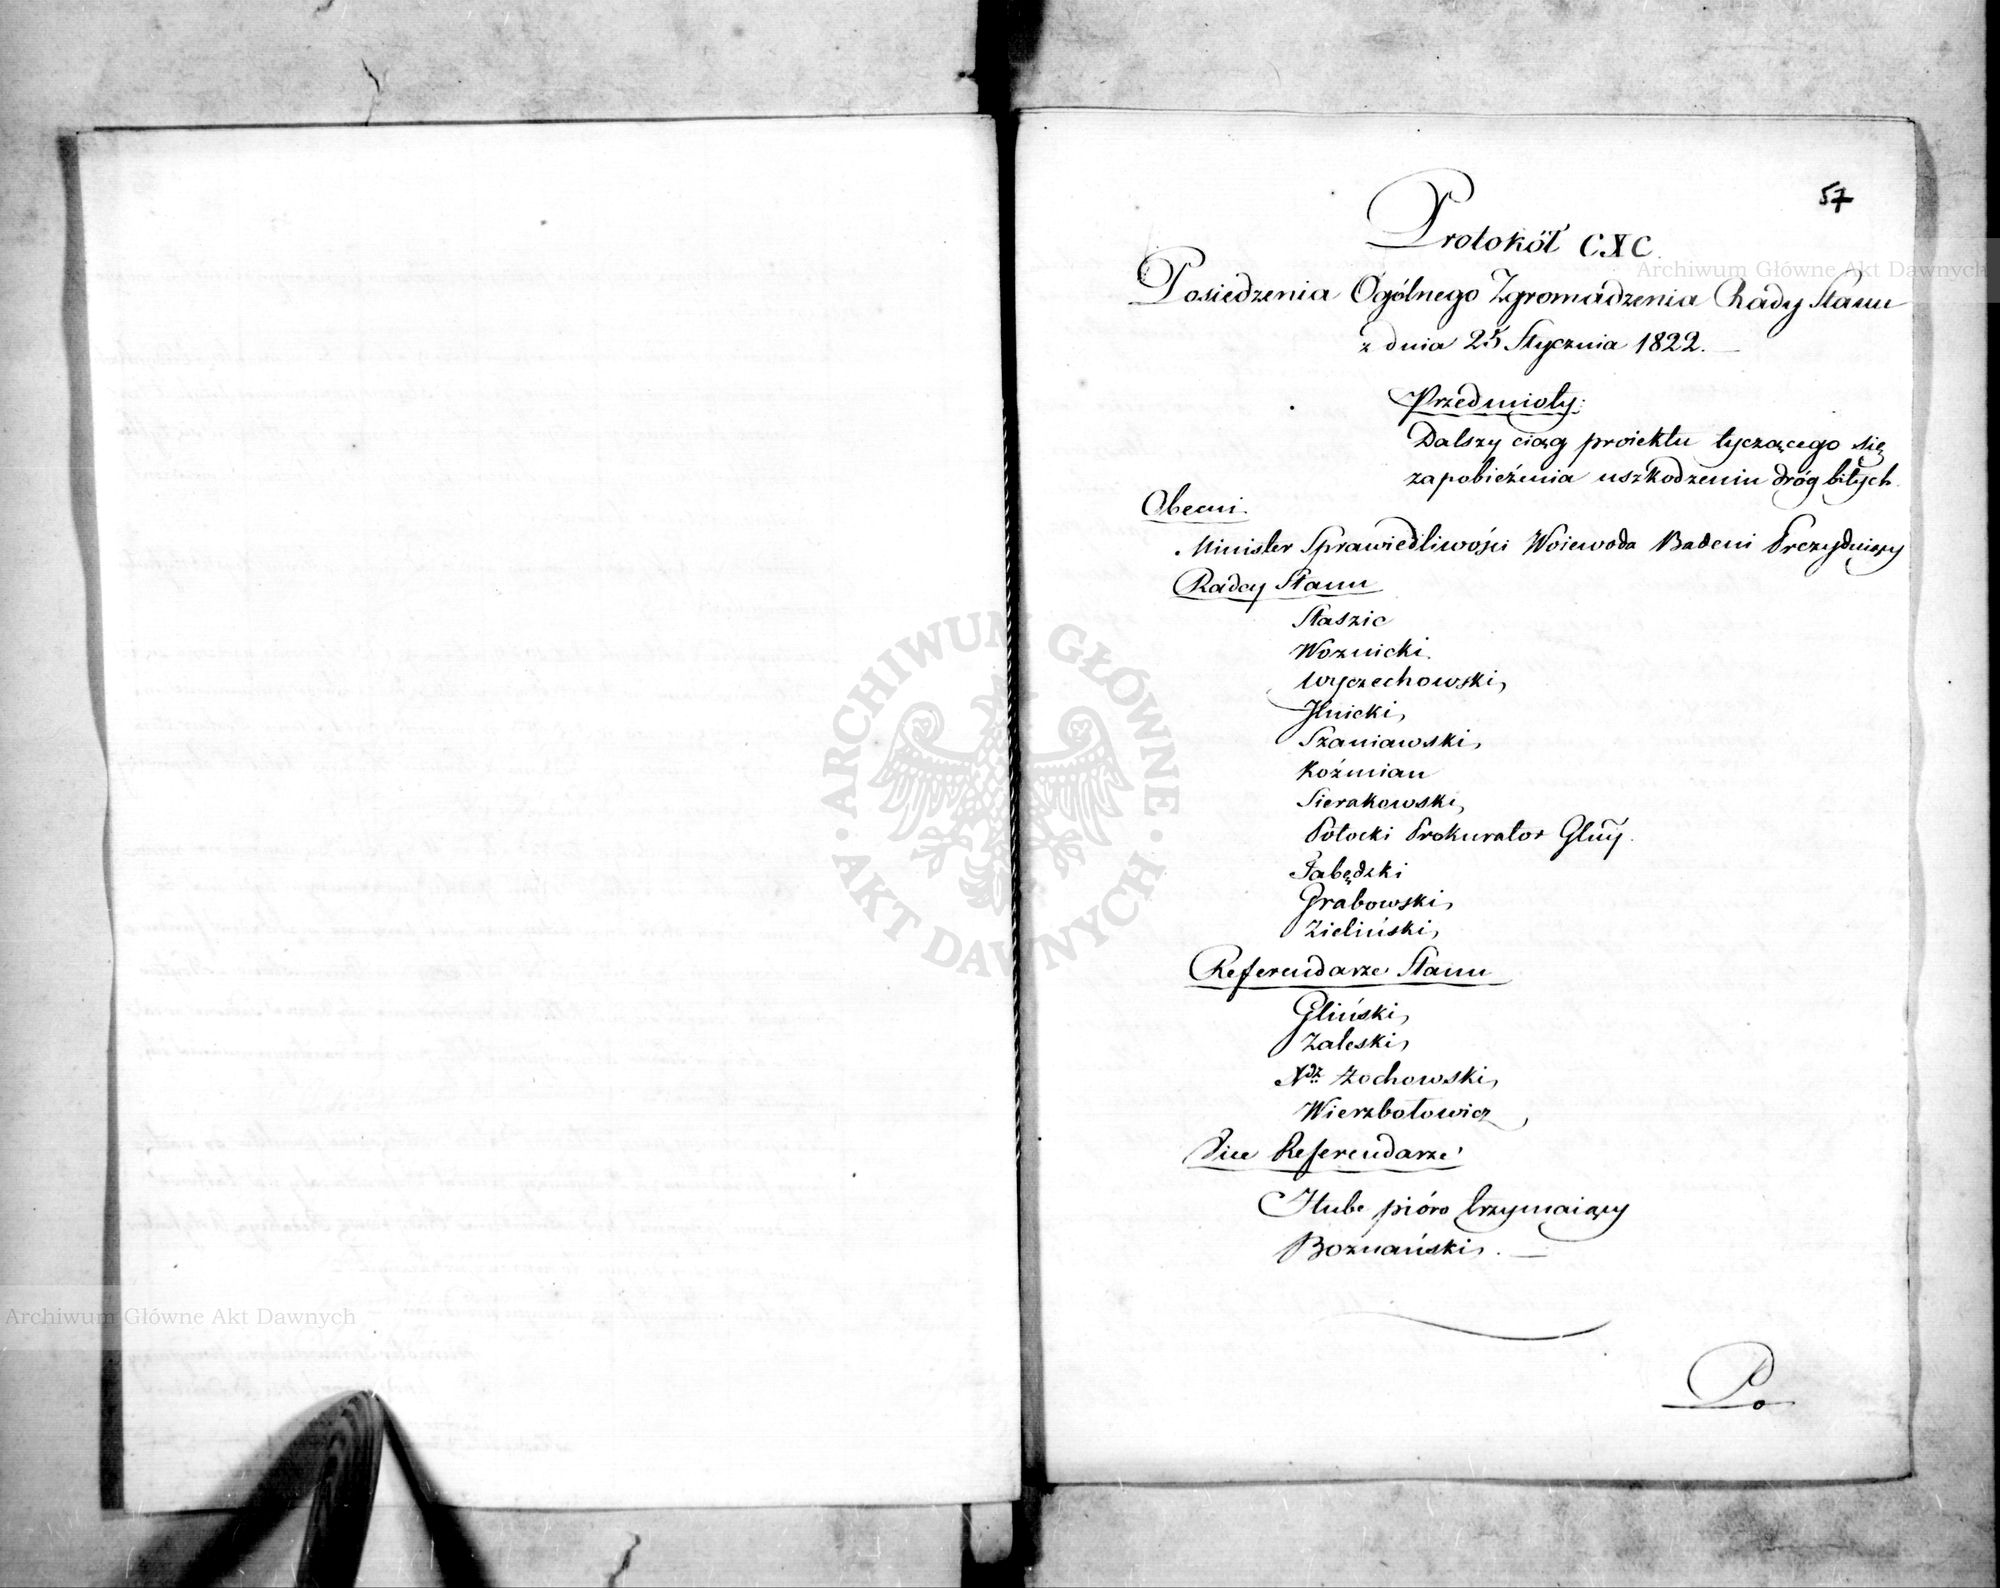 57
Protokół CXC.
Posiedzenia Ogólnego Zgromadzenia Rady Stanu
z dnia 25 Stycznia 1822.
Przedmioty:
Dalszy ciąg proiektu tyczącego się
zapobieżenia uszkodzeniu dróg bitych.
Obecni.
Minister Sprawiedliwości Woiewoda Badeni Prezyduiący
Radcy Stanu
Staszic
Woznicki.
Wyczechowski,
Ilnicki,
Szaniawski,
Koźmian
Sierakowski,
Potocki Prokurator Glny.
Łabędzki
Grabowski,
Zieliński,
Referendarze Stanu
Gliński,
Zaleski,
Ndz. Żochowski,
Wierzbołowicz,
Vice Referendarze
Hube pióro trzymaiący
Boznański. —
Po
Archiwum Główne Akt Dawnych
Archiwum Główne Akt Dawnych
ARCHIWUM GŁÓWNE
AKT DAWNYCH